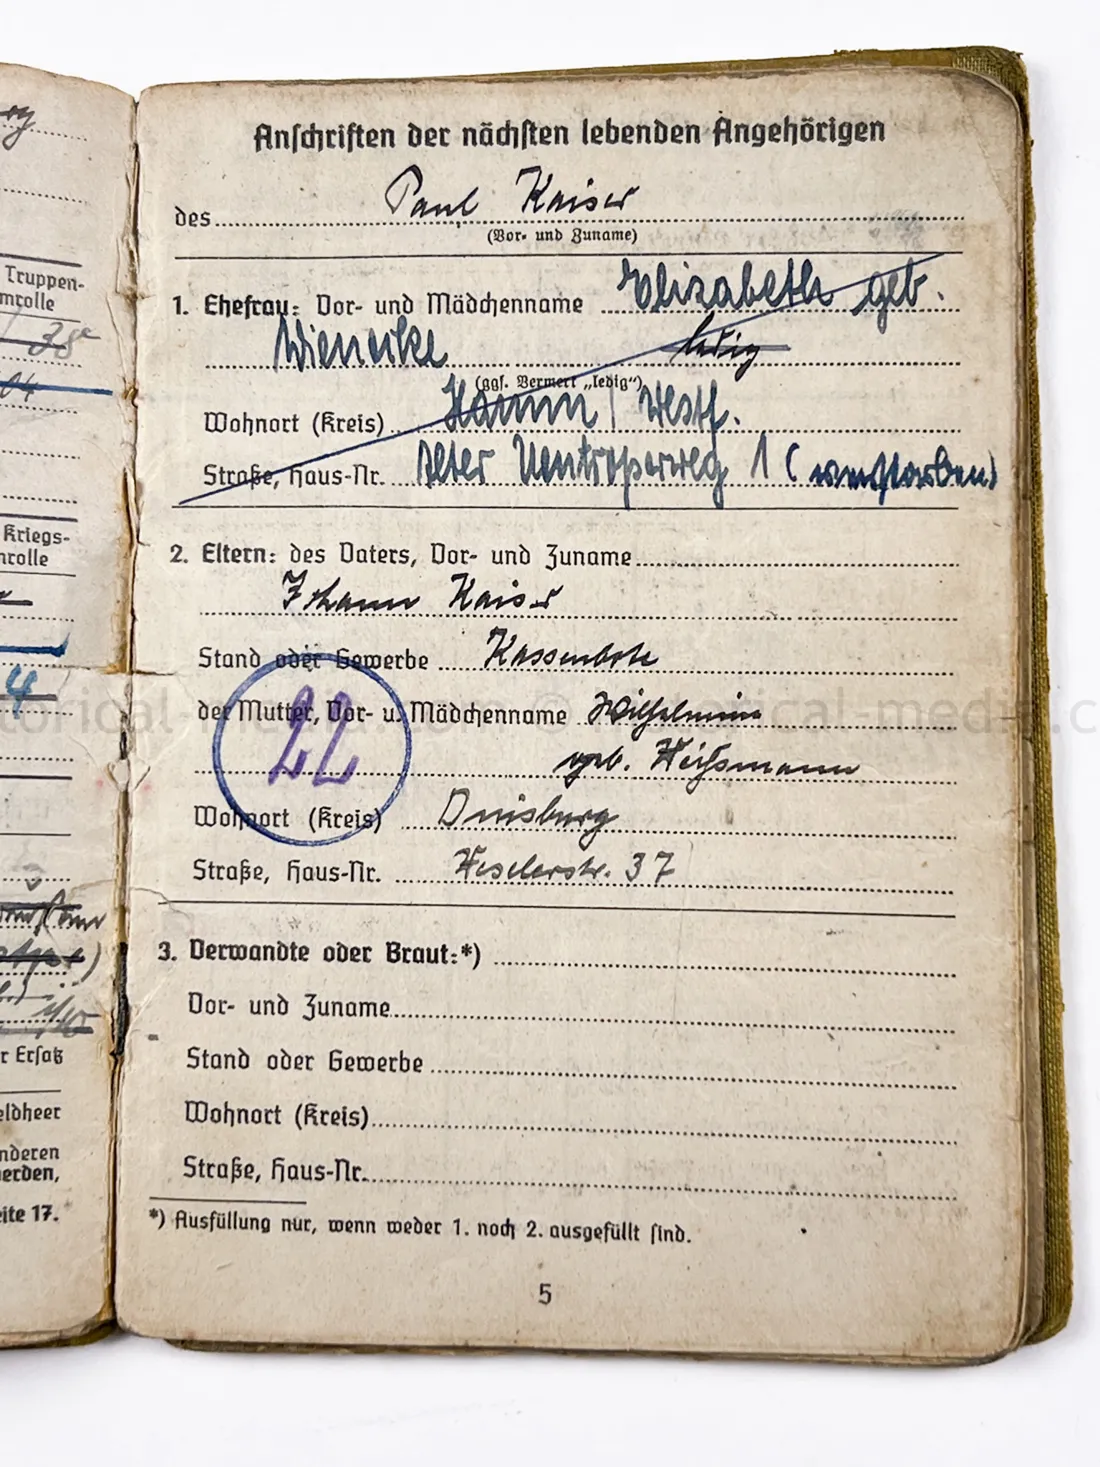 Truppen-
mrolle
04
Kriegs-
nrolle
4
r Ersatz
eldheer
nderen
erden,
eite 17.
Anschriften der nächsten lebenden Angehörigen
des Paul Kaiser
(Vor- und Zuname)
1. Ehefrau: Vor- und Mädchenname Elizabeth geb.
ledig
(ggf. Vermerk „ledig“)
Wohnort (Kreis) Hamm / Westf.
Straße, Haus-Nr. Alter Uentroperweg 1 (verstorben)
2. Eltern: des Vaters, Vor- und Zuname
Johann Kaiser
Stand oder Gewerbe Kassenbote
der Mutter, Vor- u. Mädchenname Wilhelmine
22
geb. Weißmann
Wohnort (Kreis) Duisburg
Straße, Haus-Nr. Weselerstr. 37
3. Verwandte oder Braut:*)
Vor- und Zuname
Stand oder Gewerbe
Wohnort (Kreis)
Straße, Haus-Nr.
*) Ausfüllung nur, wenn weder 1. noch 2. ausgefüllt sind.
5